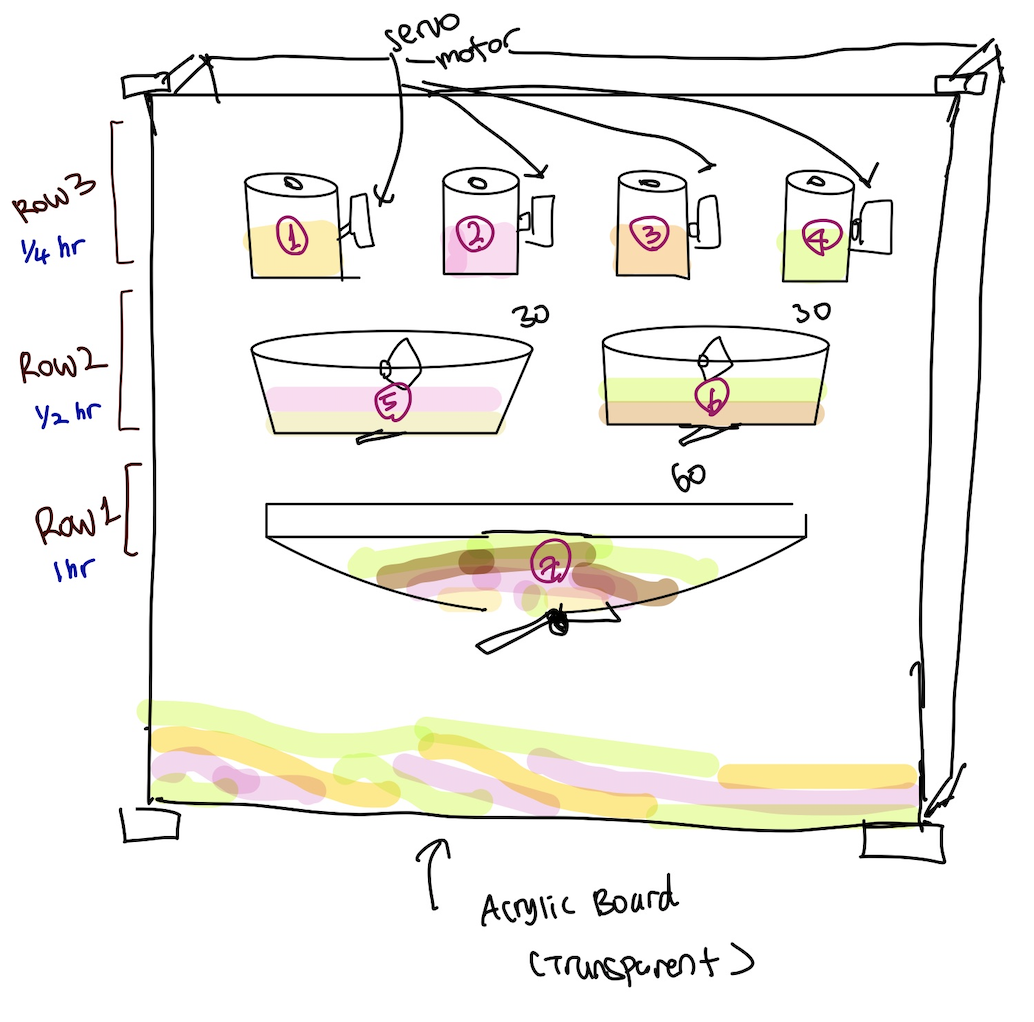 servo
motor
Row3
1/4 hr
1
2
3
4
30
30
Row2
1/2 hr
5
6
60
Row1
1hr
7
Acrylic Board
(Transparent)